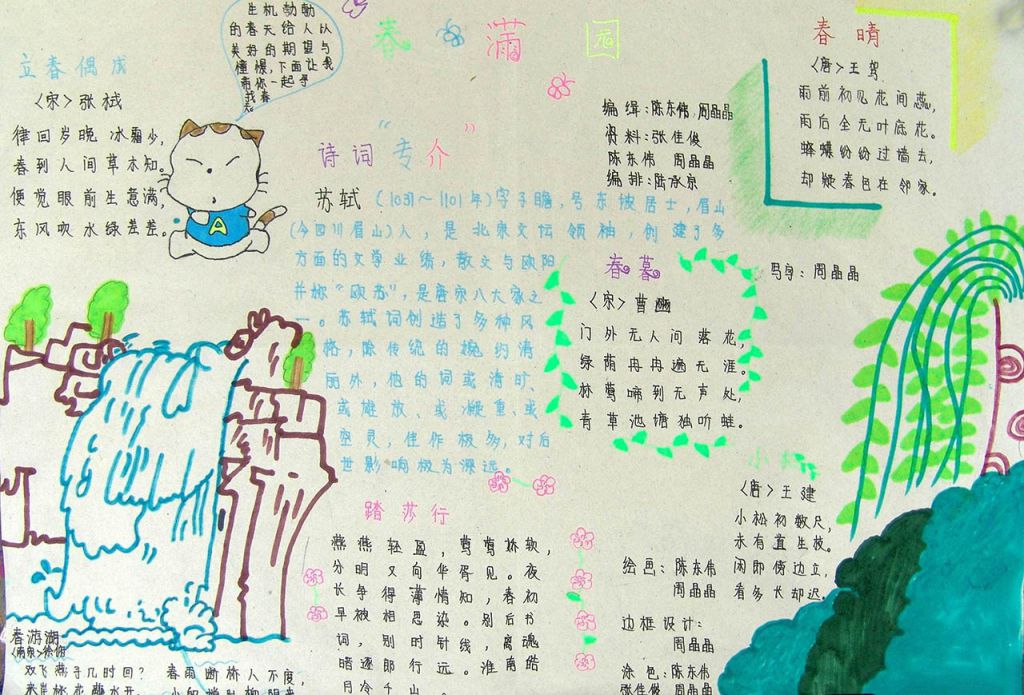 春满园
生机勃勃
的春天给人以
美好的期望与
憧憬,下面让我
带你一起寻
找春
立春偶成
〈宋〉张栻
律回岁晚 冰霜少,
春到人间草木知。
便觉眼前生意满,
东风吹水绿差差。
编缉:陈东伟 周晶晶
资料:张佳俊
陈东伟 周晶晶
编排:陆承泉
春晴
〈唐〉王驾
雨前初见花间蕊,
雨后全无叶底花。
蜂蝶纷纷过墙去,
却疑春色在邻家。
诗词“专介”
苏轼(1031~1101年)字子瞻,号东坡居士,眉山
(今四川眉山)人,是北宋文坛领袖,创建了多
方面的文学业绩,散文与欧阳
并称“欧苏”,是唐宋八大家之
一。苏轼词创造了多种风
格,除传统的婉约清
丽外,他的词或清旷、
或雄放、或凝重、或
空灵,佳作极多,对后
世影响极为深远。
春暮
〈宋〉曹豳
门外无人问落花,
绿荫冉冉遍无涯。
林莺啼到无声处,
青草池塘独听蛙。
写字:周晶晶
小松
〈唐〉王建
小松初数尺,
未有直生枝。
闲即傍边立,
看多长却迟。
踏莎行
燕燕轻盈,莺莺娇软,
分明又向华胥见。夜
长争得薄情知,春初
早被相思染。别后书
词,别时针线,离魂
暗逐郎行远。淮南皓
月冷千山
绘画:陈东伟
周晶晶
边框设计:
周晶晶
涂色:陈东伟
张佳俊 周晶晶
春游湖
〈南宋〉徐俯
双飞燕子几时回?
春雨断桥人不度,